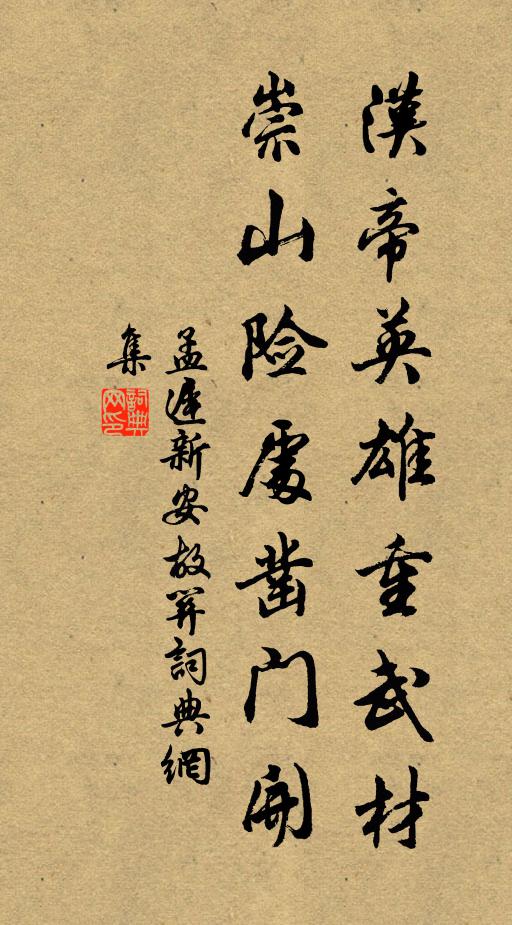 漢帝英雄重武材
崇山險處鑿門開
孟遲新安故關詞典網
集
詞典
网印